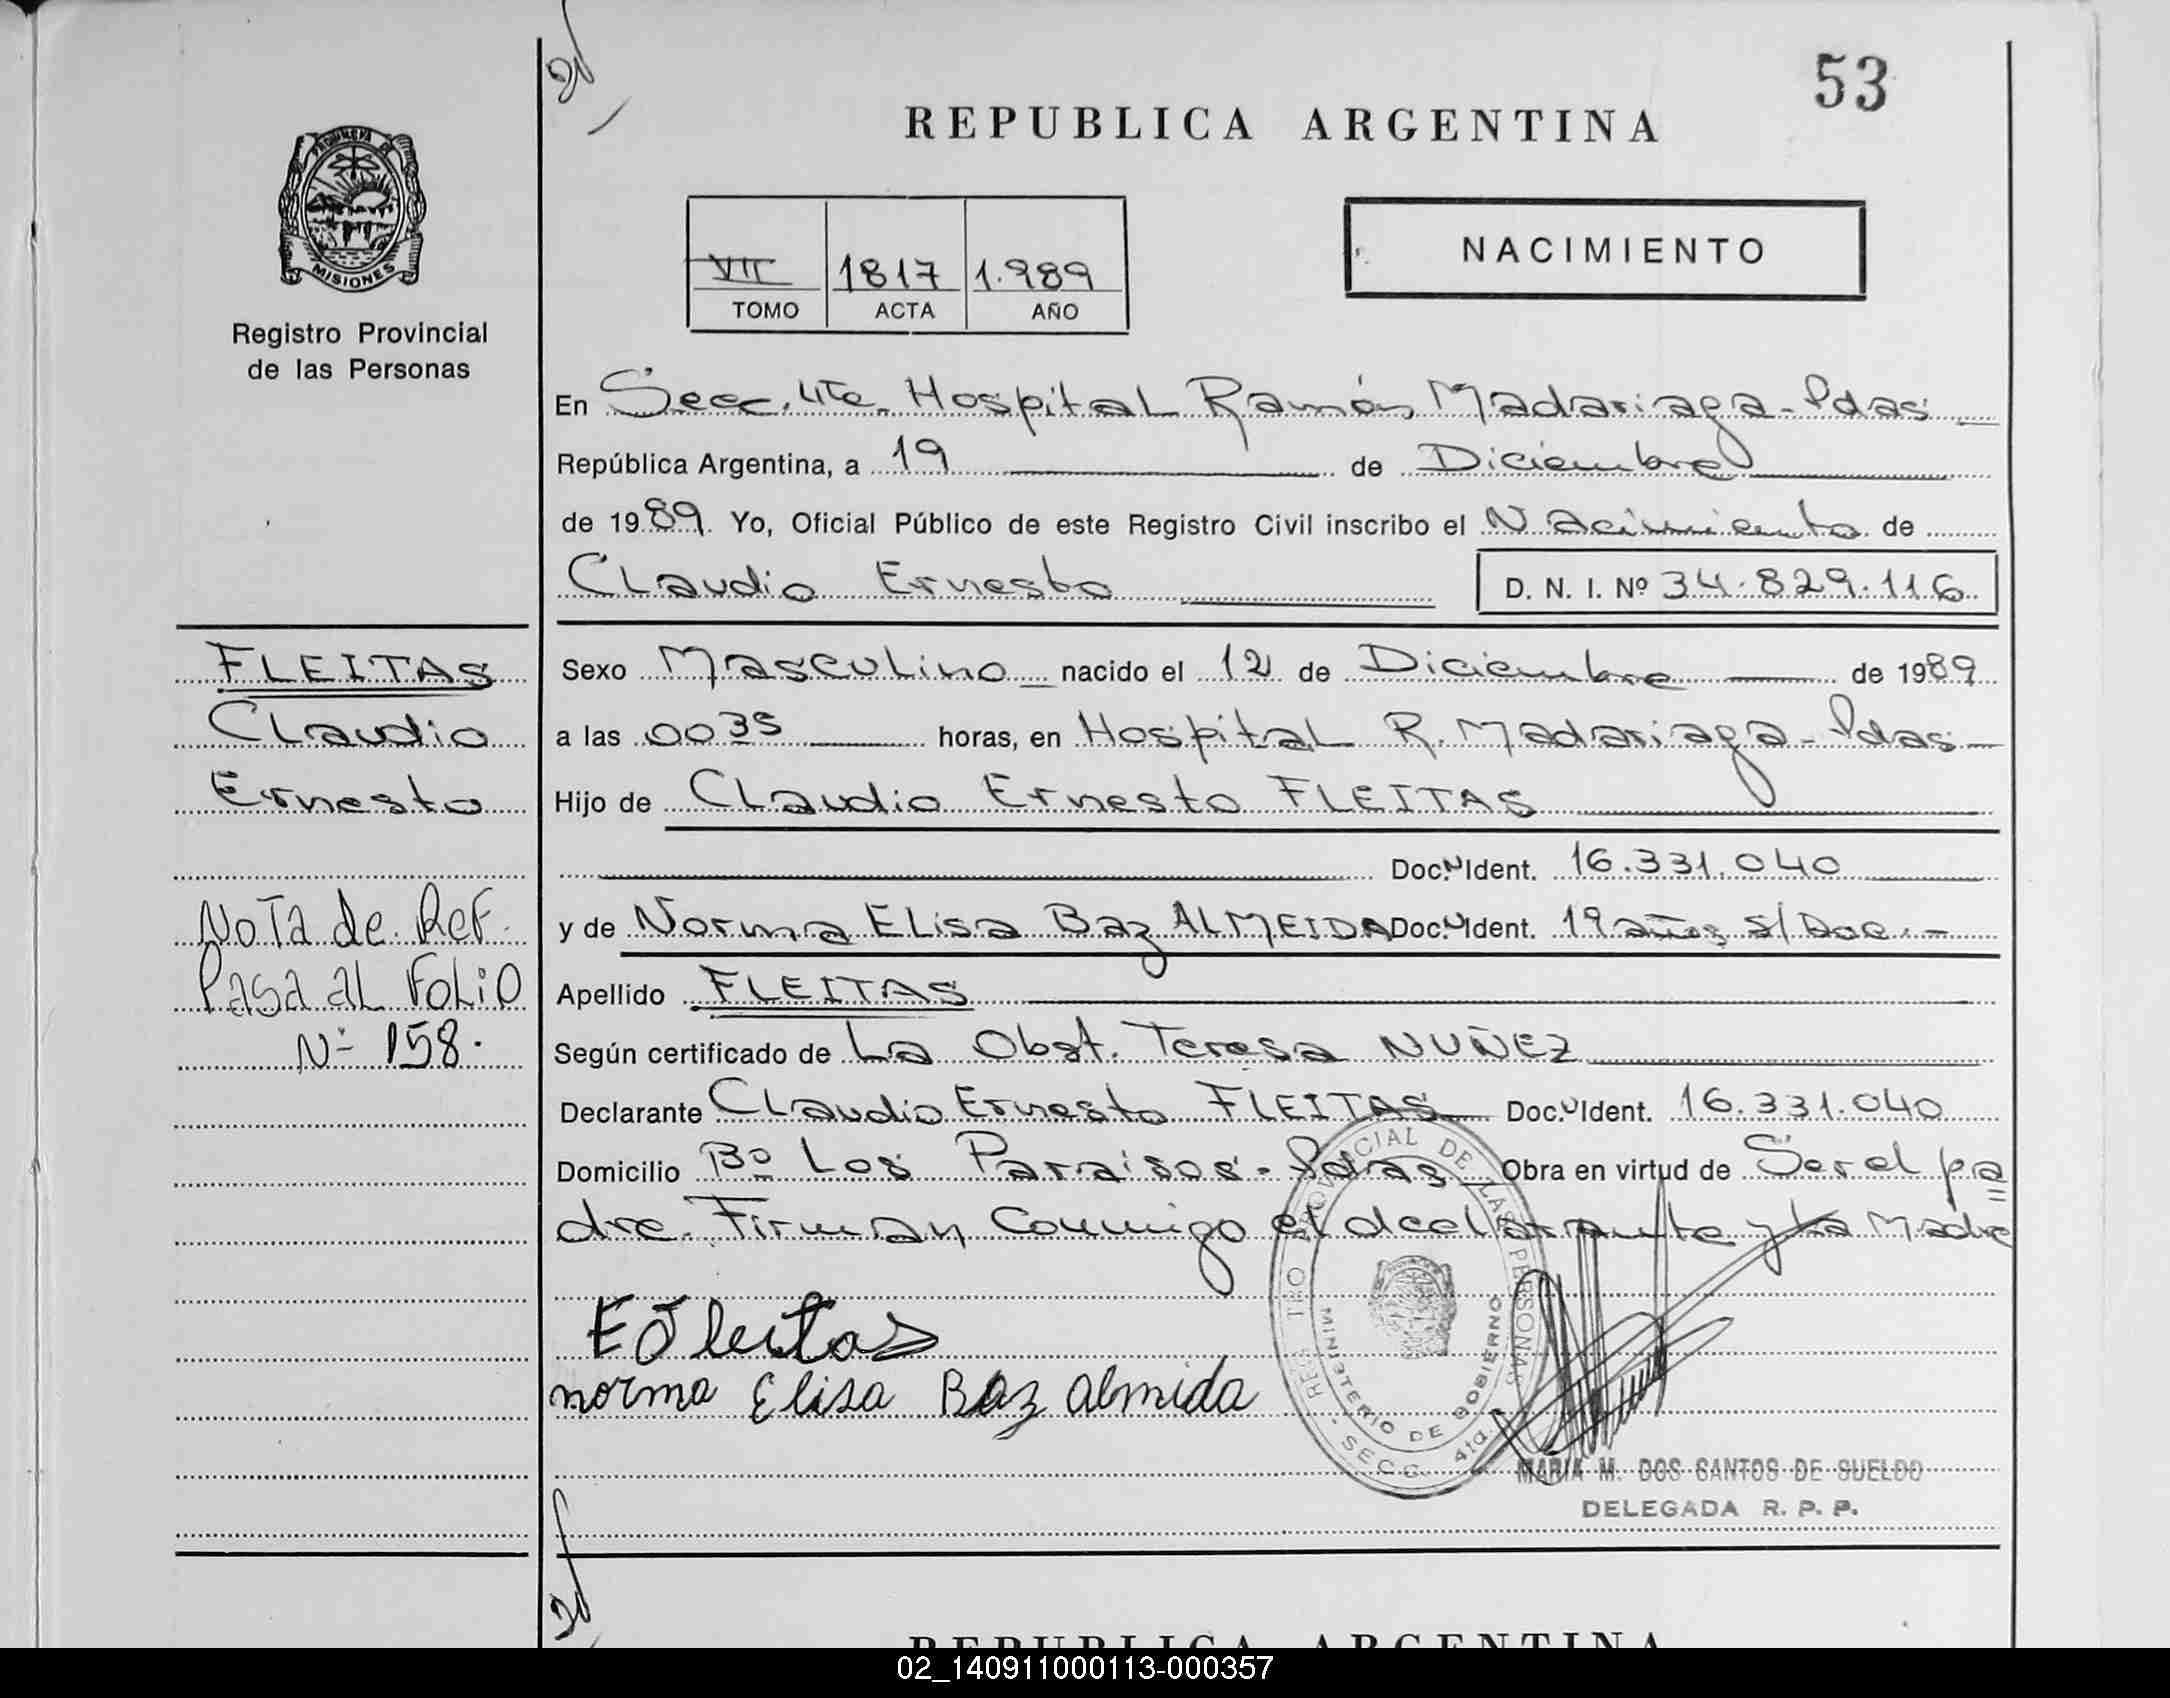 53
REPUBLICA ARGENTINA
PROVINCIA DE
MISIONES
Registro Provincial
de las Personas
VII 1817 1.989
TOMO ACTA AÑO
NACIMIENTO
En Secc. 4ta. Hospital Ramón Madariaga - Pdas
República Argentina, a 19 de Diciembre
de 1989. Yo, Oficial Público de este Registro Civil inscribo el Nacimiento de
Claudio Ernesto D. N. I. Nº 34.829.116
FLEITAS
Claudio
Ernesto
Nota de Ref.
Pasa al Folio
Nº 158.
Sexo Masculino nacido el 12 de Diciembre de 1989
a las 0035 horas, en Hospital R. Madariaga - Pdas
Hijo de Claudio Ernesto FLEITAS
Doc. N Ident. 16.331.040
y de Norma Elisa Baz ALMEIDA Doc. N Ident. 19 años s/Doc. -
Apellido FLEITAS
Según certificado de La Obst. Teresa NUÑEZ
Declarante Claudio Ernesto FLEITAS Doc. N Ident. 16.331.040
Domicilio Bº Los Paraisos - Pdas Obra en virtud de Ser el pa=
dre. Firman Conmigo el declarante y La Madre
E Fleitas
norma Elisa Baz almida
REGISTRO PROVINCIAL DE LAS PERSONAS
MINISTERIO DE GOBIERNO
- SECC. 4ta.
MARIA M. DOS SANTOS DE SUELDO
DELEGADA R. P. P.
REPUBLICA ARGENTINA
02_140911000113-000357